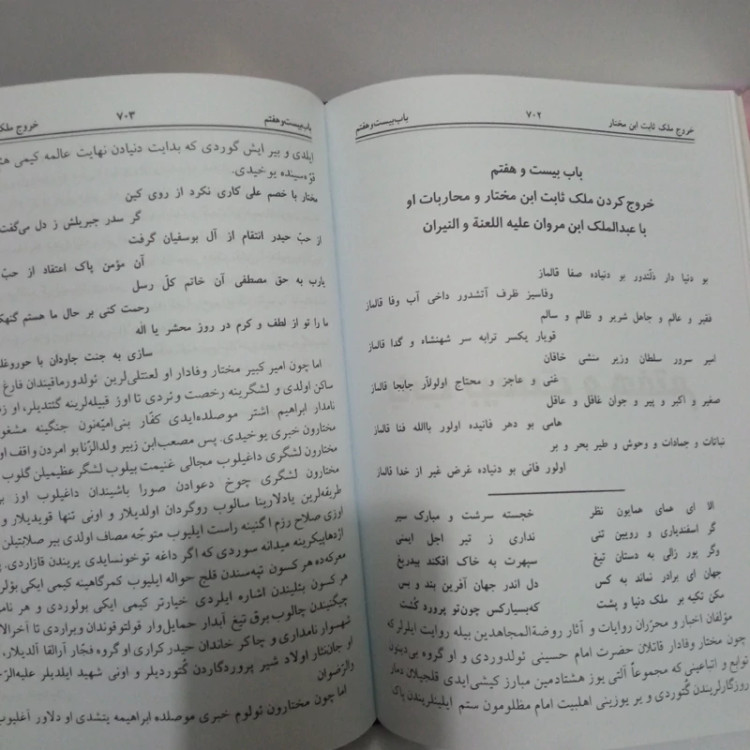 خروج ملک ثابت ابن مختار ۷۰۲ باب بیست و هفتم
باب بیست و هفتم
خروج کردن ملک ثابت ابن مختار و محاربات او
با عبدالملک ابن مروان علیه اللعنة و النیران
بو دنیا دار دلّتدور بو دنیاده صفا قالماز
وفاسیز ظرف آتشدور داخی آب وفا قالماز
فقیر و عالم و جاهل شریر و ظالم و سالم
قویار یکسر ترابه سر شهنشاه و گدا قالماز
امیر سرور سلطان وزیر منشی خاقان
غنی و عاجز و محتاج اولولاّر جابجا قالماز
صغیر و اکبر و پیر و جوان غافل و عاقل
هامی بو دهر فانیده اولور باالله فنا قالماز
نباتات و جمادات و وحوش و طیر بحر و بر
اولور فانی بو دنیاده غرض غیر از خدا قالماز
الا ای همای همایون نظر خجسته سرشت و مبارک سیر
گر اسفندیاری و رویین تنی نداری ز تیر اجل ایمنی
وگر پور زالی به دستان تیغ سپهرت به خاک افکند بیدریغ
جهان ای برادر نماند به کس دل اندر جهان آفرین بند و بس
مکن تکیه بر ملک دنیا و پشت که‌بسیارکس چون‌تو پرورده کُشت
مؤلفان اخبار و محرّران روایات و آثار روضة‌المجاهدین بیله روایت ایلرلر که
چون مختار وفادار قاتلان حضرت امام حسینی ئولدوردی و او گروه بی‌دینون
توابع و اتباعینی که مجموعاً آلتی یوز هشتادمین مبارز کیشی‌ایدی قلجیلان دمار
روزگارلریندن گتوردی و یر یوزینی اهلبیت امام مظلومون ستم ایلینلریندن پاک
باب بیست و هفتم ۷۰۳ خروج ملک
ایلدی و بیر ایش گوردی که بدایت دنیادن نهایت عالمه کیمی
قوّه‌سینده یوخیدی.
مختار با خصم علی کاری نکرد از روی کین
گر سدر جبریلش ز دل می‌گفت
از حبّ حیدر انتقام از آل بوسفیان گرفت
آن مؤمن پاک اعتقاد از حبّ
یارب به حق مصطفی آن خاتم کلّ رسل
رحمت کنی بر حال ما هستم
ما را تو از لطف و کرم در روز محشر یا اله
سازی به جنت جاودان با
اما چون امیر کبیر مختار وفادار او لعنتلی‌لرین ئولدورماقیندان فارغ
ساکن اولدی و لشگرینه رخصت ویردی تا اوز قبیله‌لرینه گتتدیلر، او
نامدار ابراهیم اشتر موصلده‌ایدی کفّار بنی‌امیّه‌نون جنگینه
مختارون خبری یوخیدی. پس مصعب‌ابن زبیر ولدالزّنا بو امردن واقف
مختارون لشگری داغیلوب مجالی غنیمت بیلوب لشگر عظیمیلن گلوب
مختارون لشگری چوخ دعوادن صورا باشیندان داغیلوب اوز
طریقه‌لرین یادلارینا سالوب روگردان اولدیلار و اونی تنها قویدیلار و
اوزی صلاح رزم اگنینه راست ایلیوب متوجّه مصاف اولدی بیر صلابتیلن
اژدهاپیکرینه میدانه سوردی که اگر داغه توخونسایدی یریندن قازاردی.
معرکه‌ده هر کسون تپه‌سندن قلج حواله ایلیوب کمرگاهینه کیمی ایکی
هر کسون بئلیندن اشاره ایلردی خیارتر کیمی ایکی بولوردی و هر
چیگنیندن چالوب برق تیغ آبدار حمایل‌وار قولتوقوندان ویراردی تا
شهسوار نامداری و چاکر خاندان حیدر کراری او گروه فجّار آرالقا آلدیلار،
او جان‌نثار اولاد شیر پروردگاردن گتوردیلر و اونی شهید ایلدیلر
والرّضوان
اما چون مختارون ئولوم خبری موصلده ابراهیمه یتشدی او دلاور